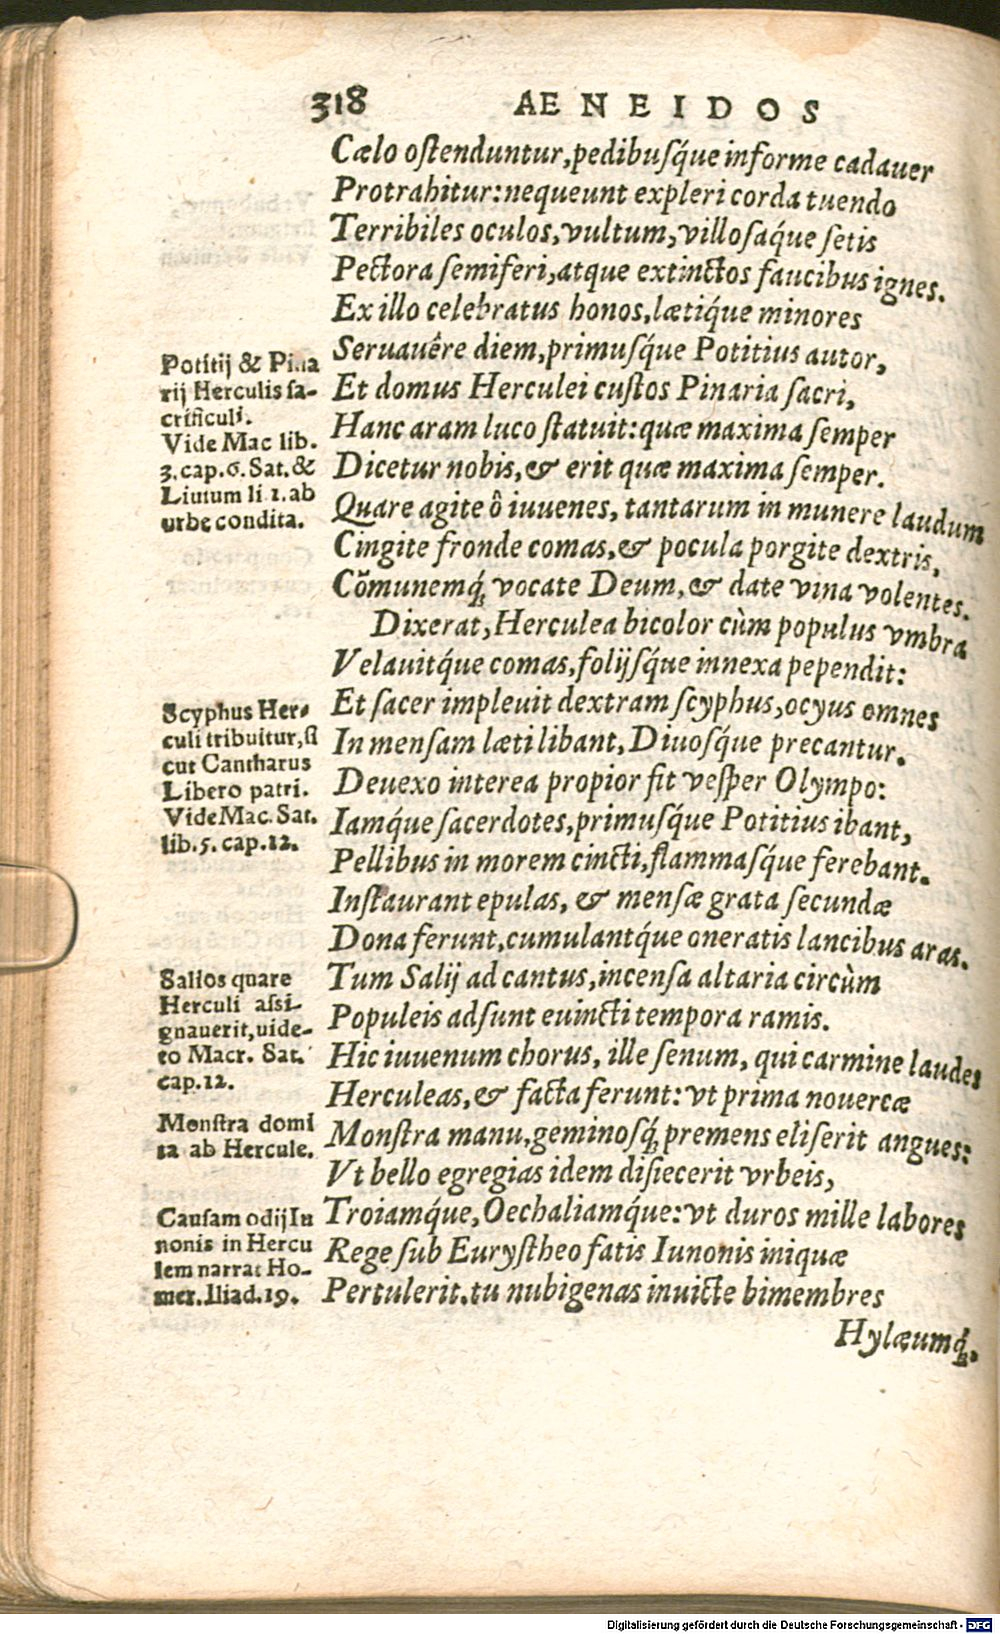 318 AENEIDOS
Cælo ostenduntur, pedibusq́ue informe cadauer
Protrahitur: nequeunt expleri corda tuendo
Terribiles oculos, vultum, villosaq́ue setis
Pectora semiferi, atque extinctos faucibus ignes.
Ex illo celebratus honos, lætiq́ue minores
Seruauêre diem, primusq́ue Potitius autor,
Et domus Herculei custos Pinaria sacri,
Hanc aram luco statuit: quæ maxima semper
Dicetur nobis, & erit quæ maxima semper.
Quare agite ô iuuenes, tantarum in munere laudum
Cingite fronde comas, & pocula porgite dextris,
Cõmunemq́; vocate Deum, & date vina volentes.
Dixerat, Herculea bicolor cùm populus vmbra
Velauitq́ue comas, folijsq́ue innexa pependit:
Et sacer impleuit dextram scyphus, ocyus omnes
In mensam læti libant, Diuosq́ue precantur.
Deuexo interea propior fit vesper Olympo:
Iamq́ue sacerdotes, primusq́ue Potitius ibant,
Pellibus in morem cincti, flammasq́ue ferebant.
Instaurant epulas, & mensæ grata secundæ
Dona ferunt, cumulantq́ue oneratis lancibus aras.
Tum Salij ad cantus, incensa altaria circùm
Populeis adsunt euincti tempora ramis.
Hic iuuenum chorus, ille senum, qui carmine laudes
Herculeas, & facta ferunt: vt prima nouercæ
Monstra manu, geminosq́; premens eliserit angues:
Vt bello egregias idem disiecerit vrbeis,
Troiamq́ue, Oechaliamq́ue: vt duros mille labores
Rege sub Eurystheo fatis Iunonis iniquæ
Pertulerit. tu nubigenas inuicte bimembres
Hylæumq́;.
Potitij & Pina
rij Herculis sa-
crificuli.
Vide Mac lib.
3. cap. 6. Sat. &
Liuium li 1. ab
vrbe condita.
Scyphus Her-
culi tribuitur, si
cut Cantharus
Libero patri.
Vide Mac. Sat.
lib. 5. cap. 12.
Salios quare
Herculi assi-
gnauerit, uide-
to Macr. Sat.
cap. 12.
Monstra domi
ta ab Hercule.
Causam odij Iu
nonis in Hercu
lem narrat Ho-
mer. Iliad. 19.
Digitalisierung gefördert durch die Deutsche Forschungsgemeinschaft - DFG